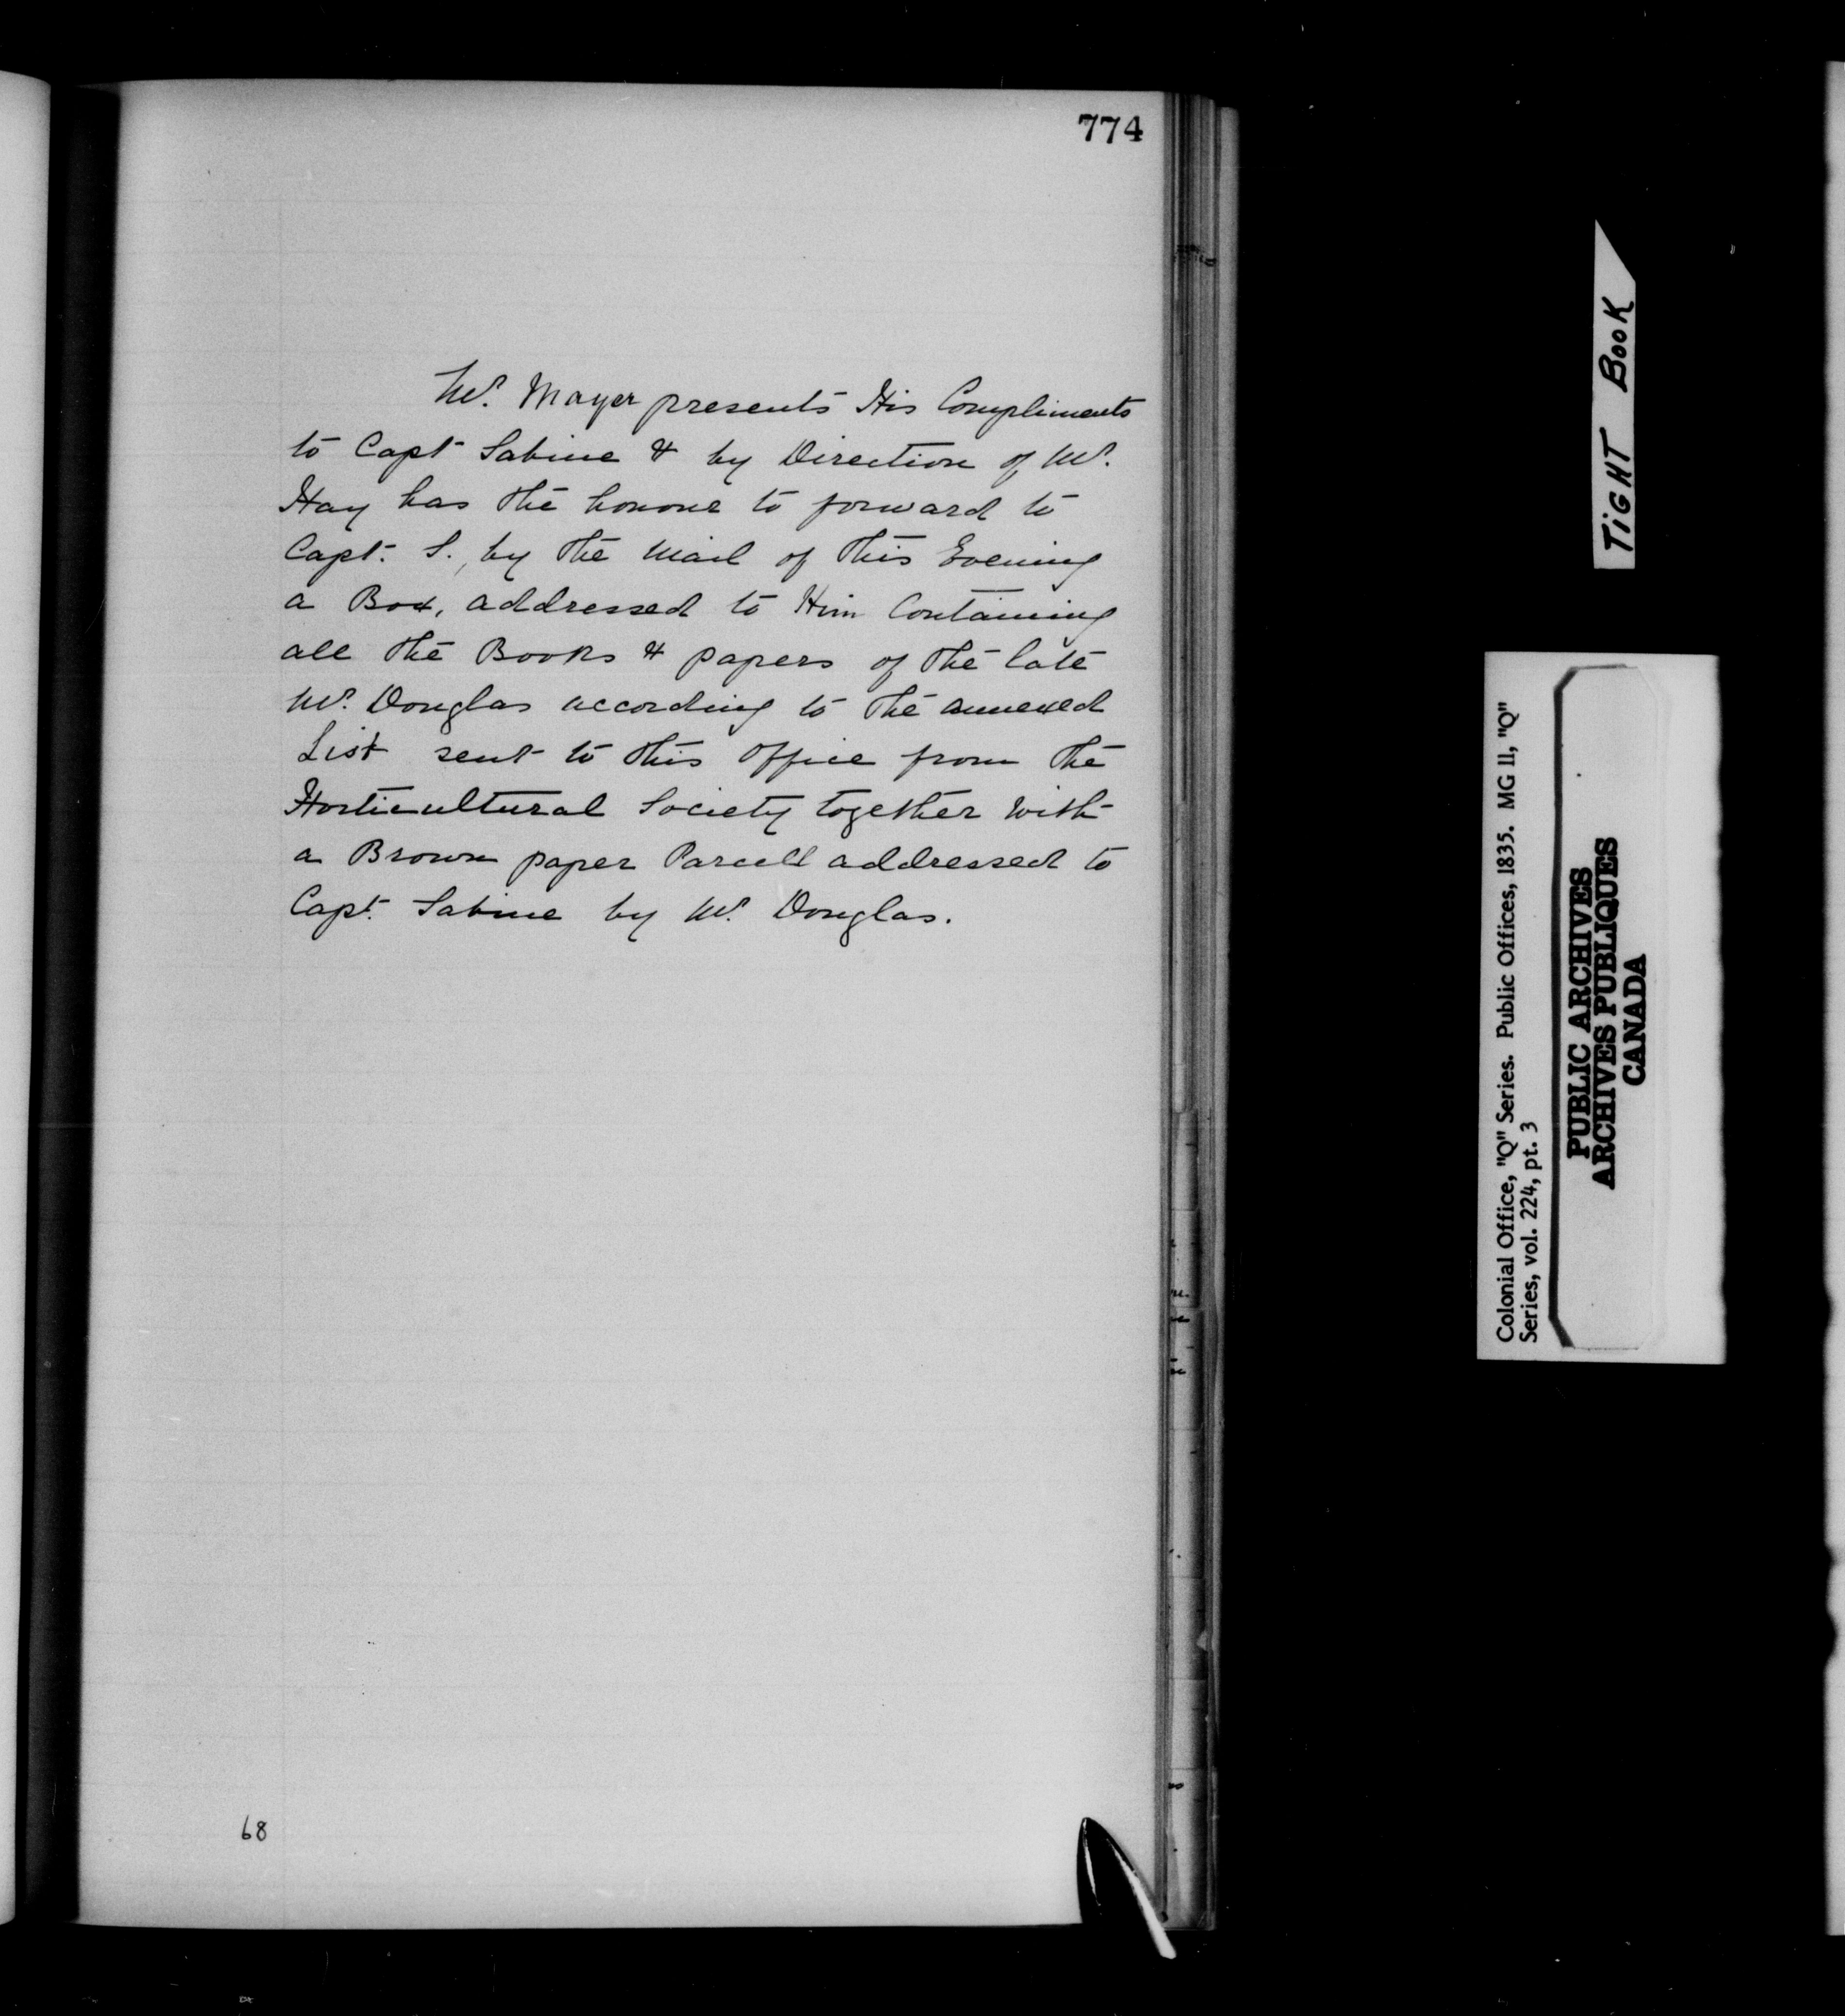 774
Mr. Mayer presents His Compliments
to Capt Sabine & by Direction of Mr.
Hay has the honour to forward to
Capt. S., by the Mail of this Evening
a Box, addressed to Him Containing
all the Books & papers of the late
Mr. Douglas according to the annexed
List sent to this Office from the
Horticultural Society together with
a Brown paper Parcell addressed to
Capt. Sabine by Mr. Douglas.
68
TIGHT BOOK
Colonial Office, "Q" Series. Public Offices, 1835. MG 11, "Q"
Series, vol. 224, pt. 3
PUBLIC ARCHIVES
ARCHIVES PUBLIQUES
CANADA